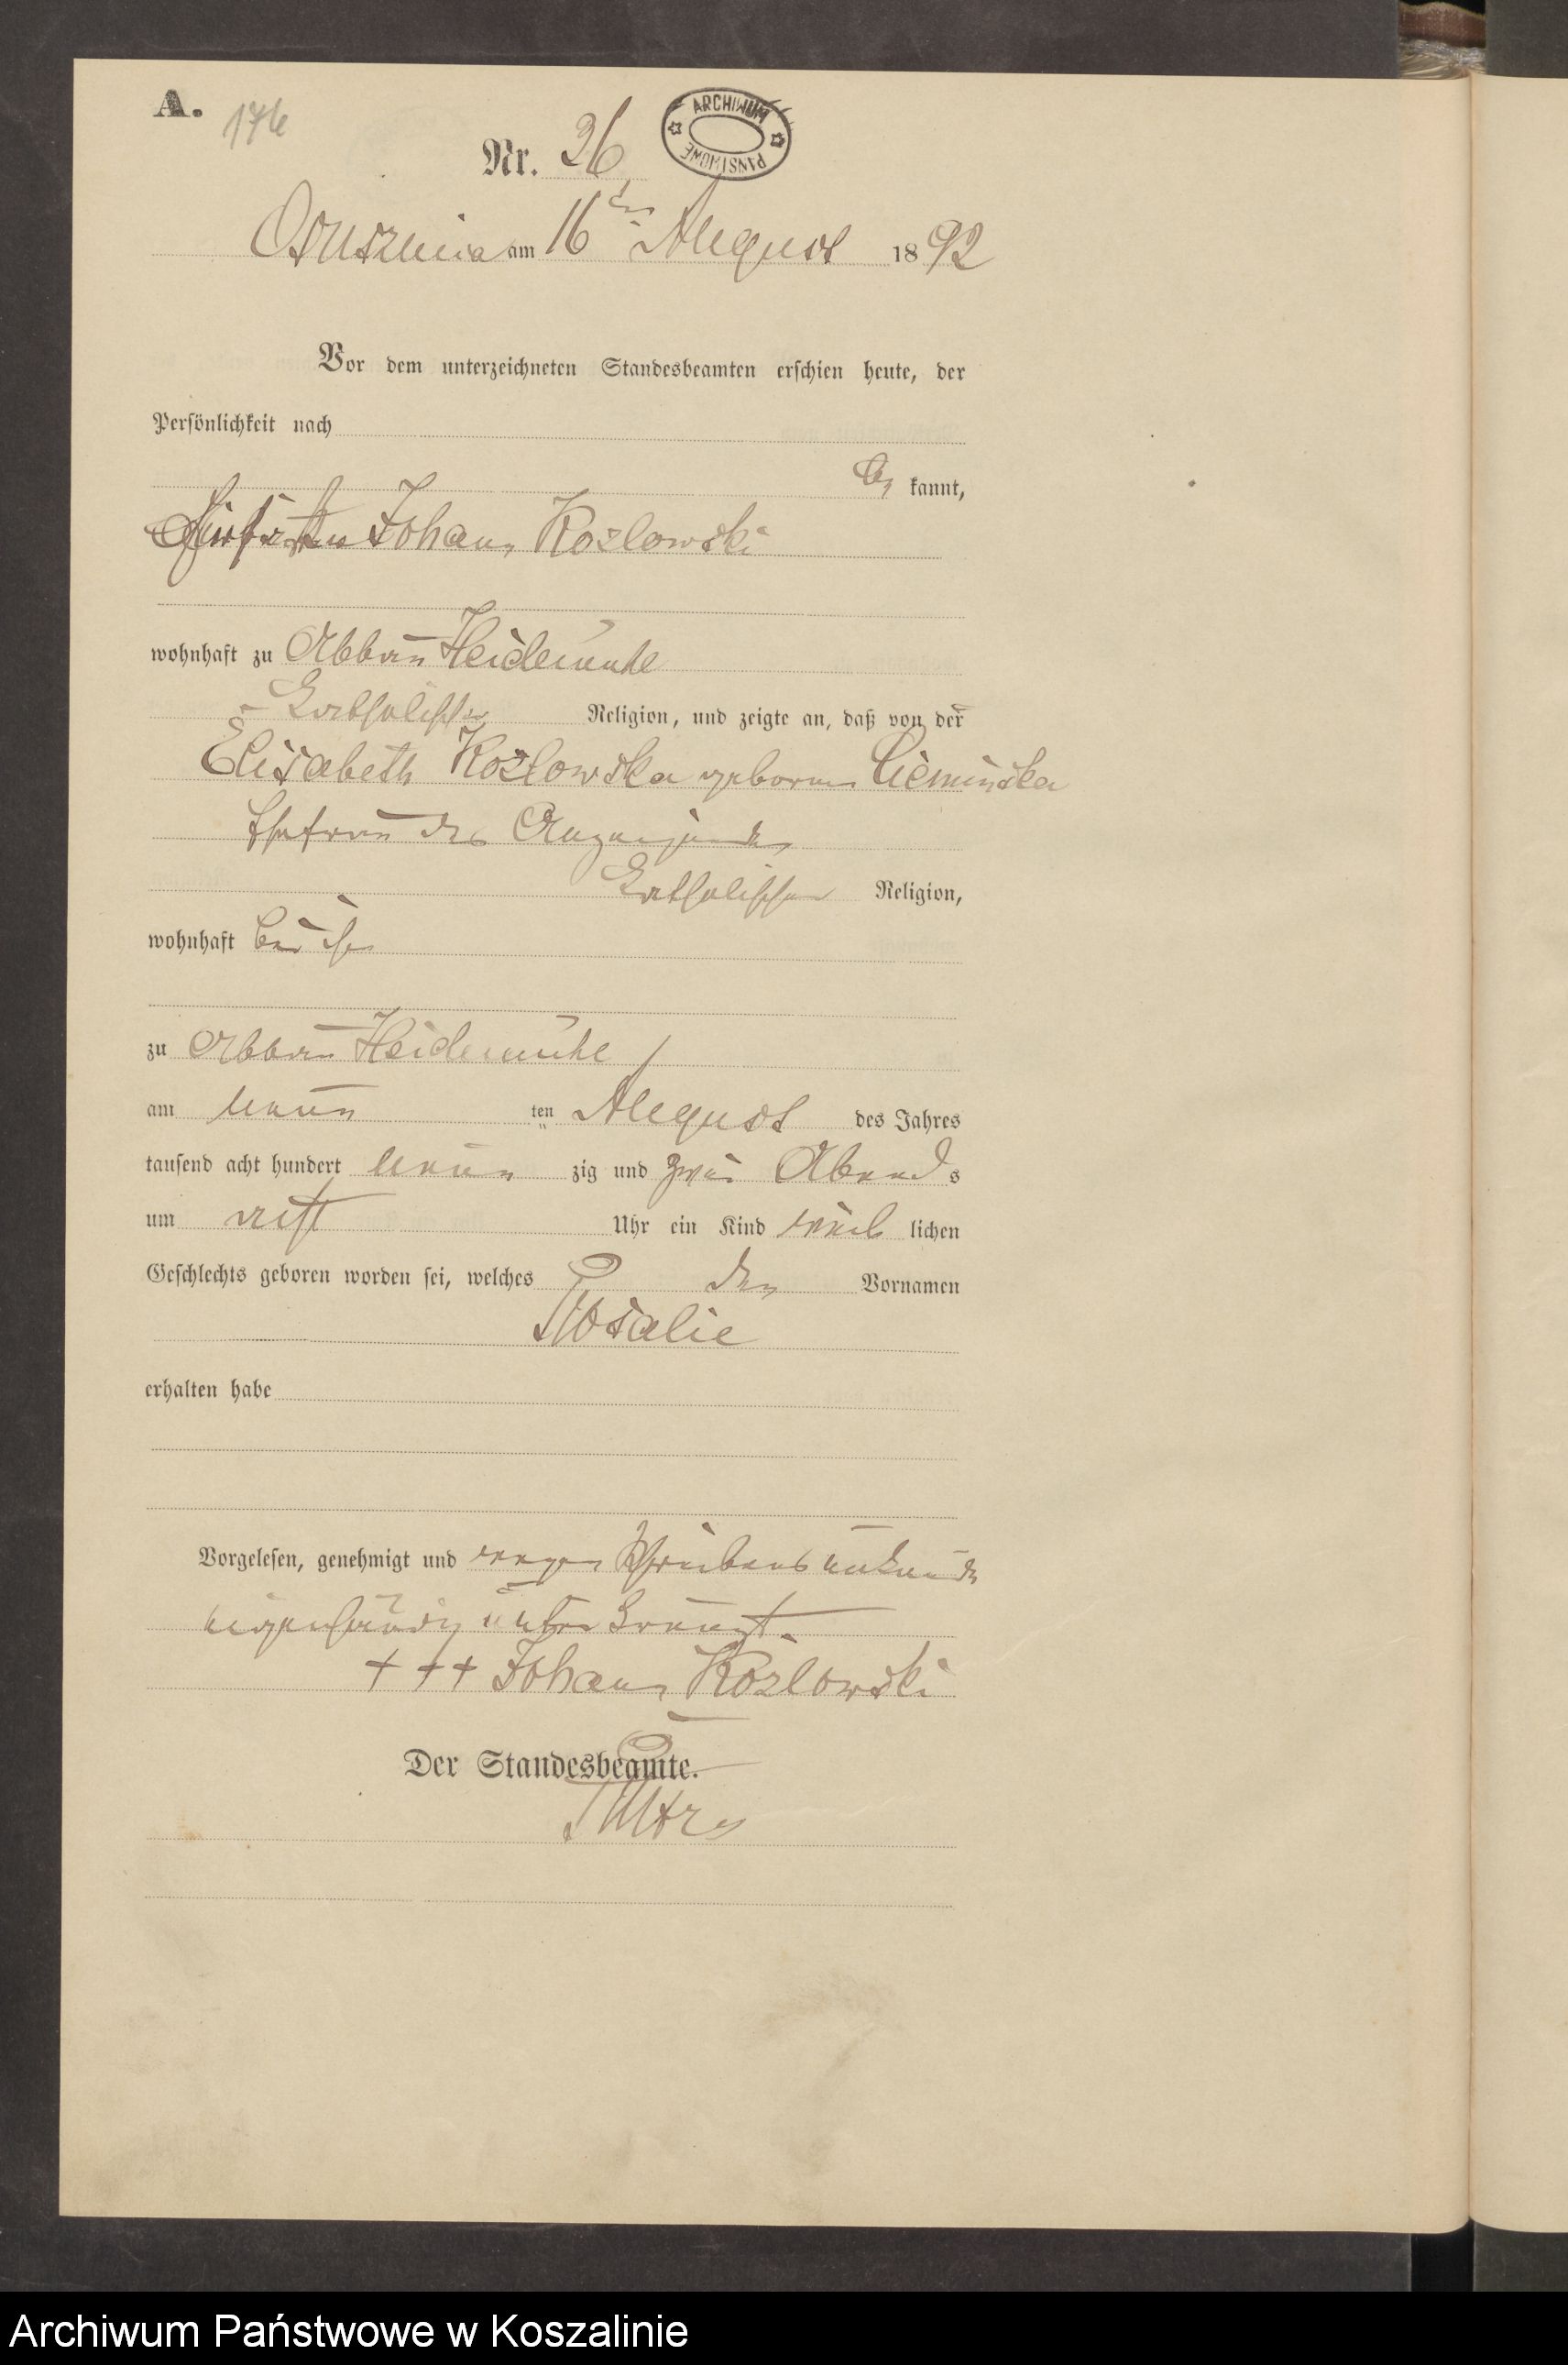 A. 176
Nr. 26
ARCHIWUM PAŃSTWOWE
Ossusznica am 16ten August 1892
Vor dem unterzeichneten Standesbeamten erschien heute, der
Persönlichkeit nach
be kannt,
Johann Kozlowski
wohnhaft zu Abbau Heidemühl
katholischer Religion, und zeigte an, daß von der
Elisabeth Kozlowska geborene Ciemińska
Ehefrau des Anzeigenden
katholischer Religion,
wohnhaft bei ihm
zu Abbau Heidemühl
am neun ten August des Jahres
tausend acht hundert neun zig und zwei Abends
um acht Uhr ein Kind weib lichen
Geschlechts geboren worden sei, welches den Vornamen
Rosalie
erhalten habe
Vorgelesen, genehmigt und wegen Schreibensunkunde
eigenhändig unterkreuzt.
+ + + Johann Kozlowski
Der Standesbeamte.
Archiwum Państwowe w Koszalinie